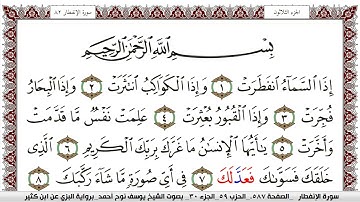 الجزء الثلاثون
سورة الإنفطار ٨٢
بِسْمِ ٱللَّهِ ٱلرَّحْمَٰنِ ٱلرَّحِيمِ
إِذَا ٱلسَّمَآءُ ٱنفَطَرَتْ ١ وَإِذَا ٱلْكَوَاكِبُ ٱنتَثَرَتْ ٢ وَإِذَا ٱلْبِحَارُ
فُجِّرَتْ ٣ وَإِذَا ٱلْقُبُورُ بُعْثِرَتْ ٤ عَلِمَتْ نَفْسٌ مَّا قَدَّمَتْ
وَأَخَّرَتْ ٥ يَٰٓأَيُّهَا ٱلْإِنسَٰنُ مَا غَرَّكَ بِرَبِّكَ ٱلْكَرِيمِ ٦ ٱلَّذِي
خَلَقَكَ فَسَوَّىٰكَ فَعَدَّلَكَ ٧ فِىٓ أَىِّ صُورَةٍ مَّا شَآءَ رَكَّبَكَ ٨
سورة الإنفطار الصفحة ٥٨٧ الحزب ٥٩ الجزء ٣٠ بصوت الشيخ يوسف نوح أحمد برواية البزي عن ابن كثير